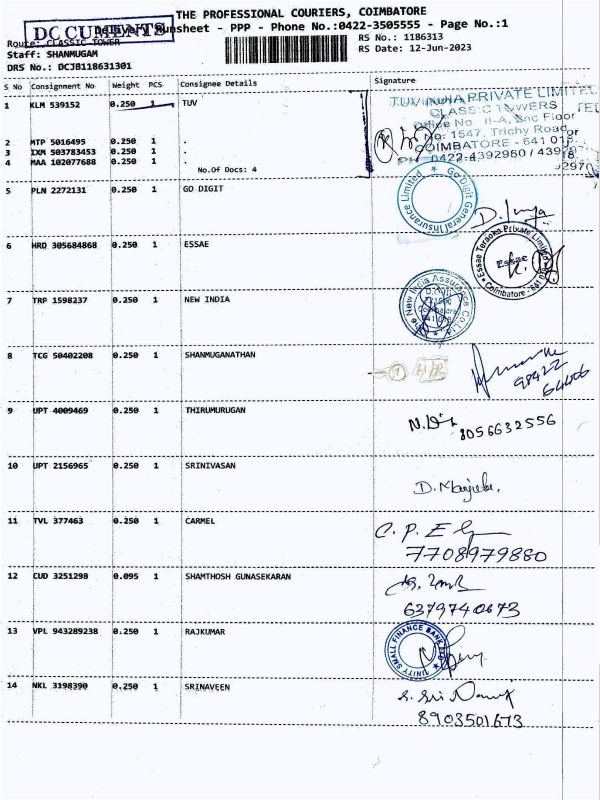 THE PROFESSIONAL COURIERS, COIMBATORE
DOCUMENTS
Delivery Runsheet - PPP - Phone No.:0422-3505555 - Page No.:1
Route: CLASSIC TOWER
RS No.: 1186313
Staff: SHANMUGAM
RS Date: 12-Jun-2023
DRS No.: DCJB118631301
S No Consignment No Weight PCS Consignee Details Signature
1 KLM 539152 0.250 1 TUV
TUV INDIA PRIVATE LIMITED
CLASSIC TOWERS
Office No II-A, 2nc Floor
No: 1547, Trichy Road
COIMBATORE - 641 018
PH: 0422-4392960 /
2 MTP 5016495 0.250 1 .
3 IXM 503783453 0.250 1 .
4 MAA 102077688 0.250 1 .
No.Of Docs: 4
5 PLN 2272131 0.250 1 GO DIGIT
Go Digit General Insurance Limited
6 HRD 305684868 0.250 1 ESSAE
Essae Teraoka Private Limited
Essae
Coimbatore - 641 018
7 TRP 1598237 0.250 1 NEW INDIA
The New India Assurance Co.Ltd
8 TCG 50402208 0.250 1 SHANMUGANATHAN
98422
9 UPT 4009469 0.250 1 THIRUMURUGAN
8056632556
10 UPT 2156965 0.250 1 SRINIVASAN
11 TVL 377463 0.250 1 CARMEL
7708979880
12 CUD 3251298 0.095 1 SHAMTHOSH GUNASEKARAN
6379740673
13 VPL 943289238 0.250 1 RAJKUMAR
UNITY SMALL FINANCE BANK LTD
14 NKL 3198390 0.250 1 SRINAVEEN
8903501673